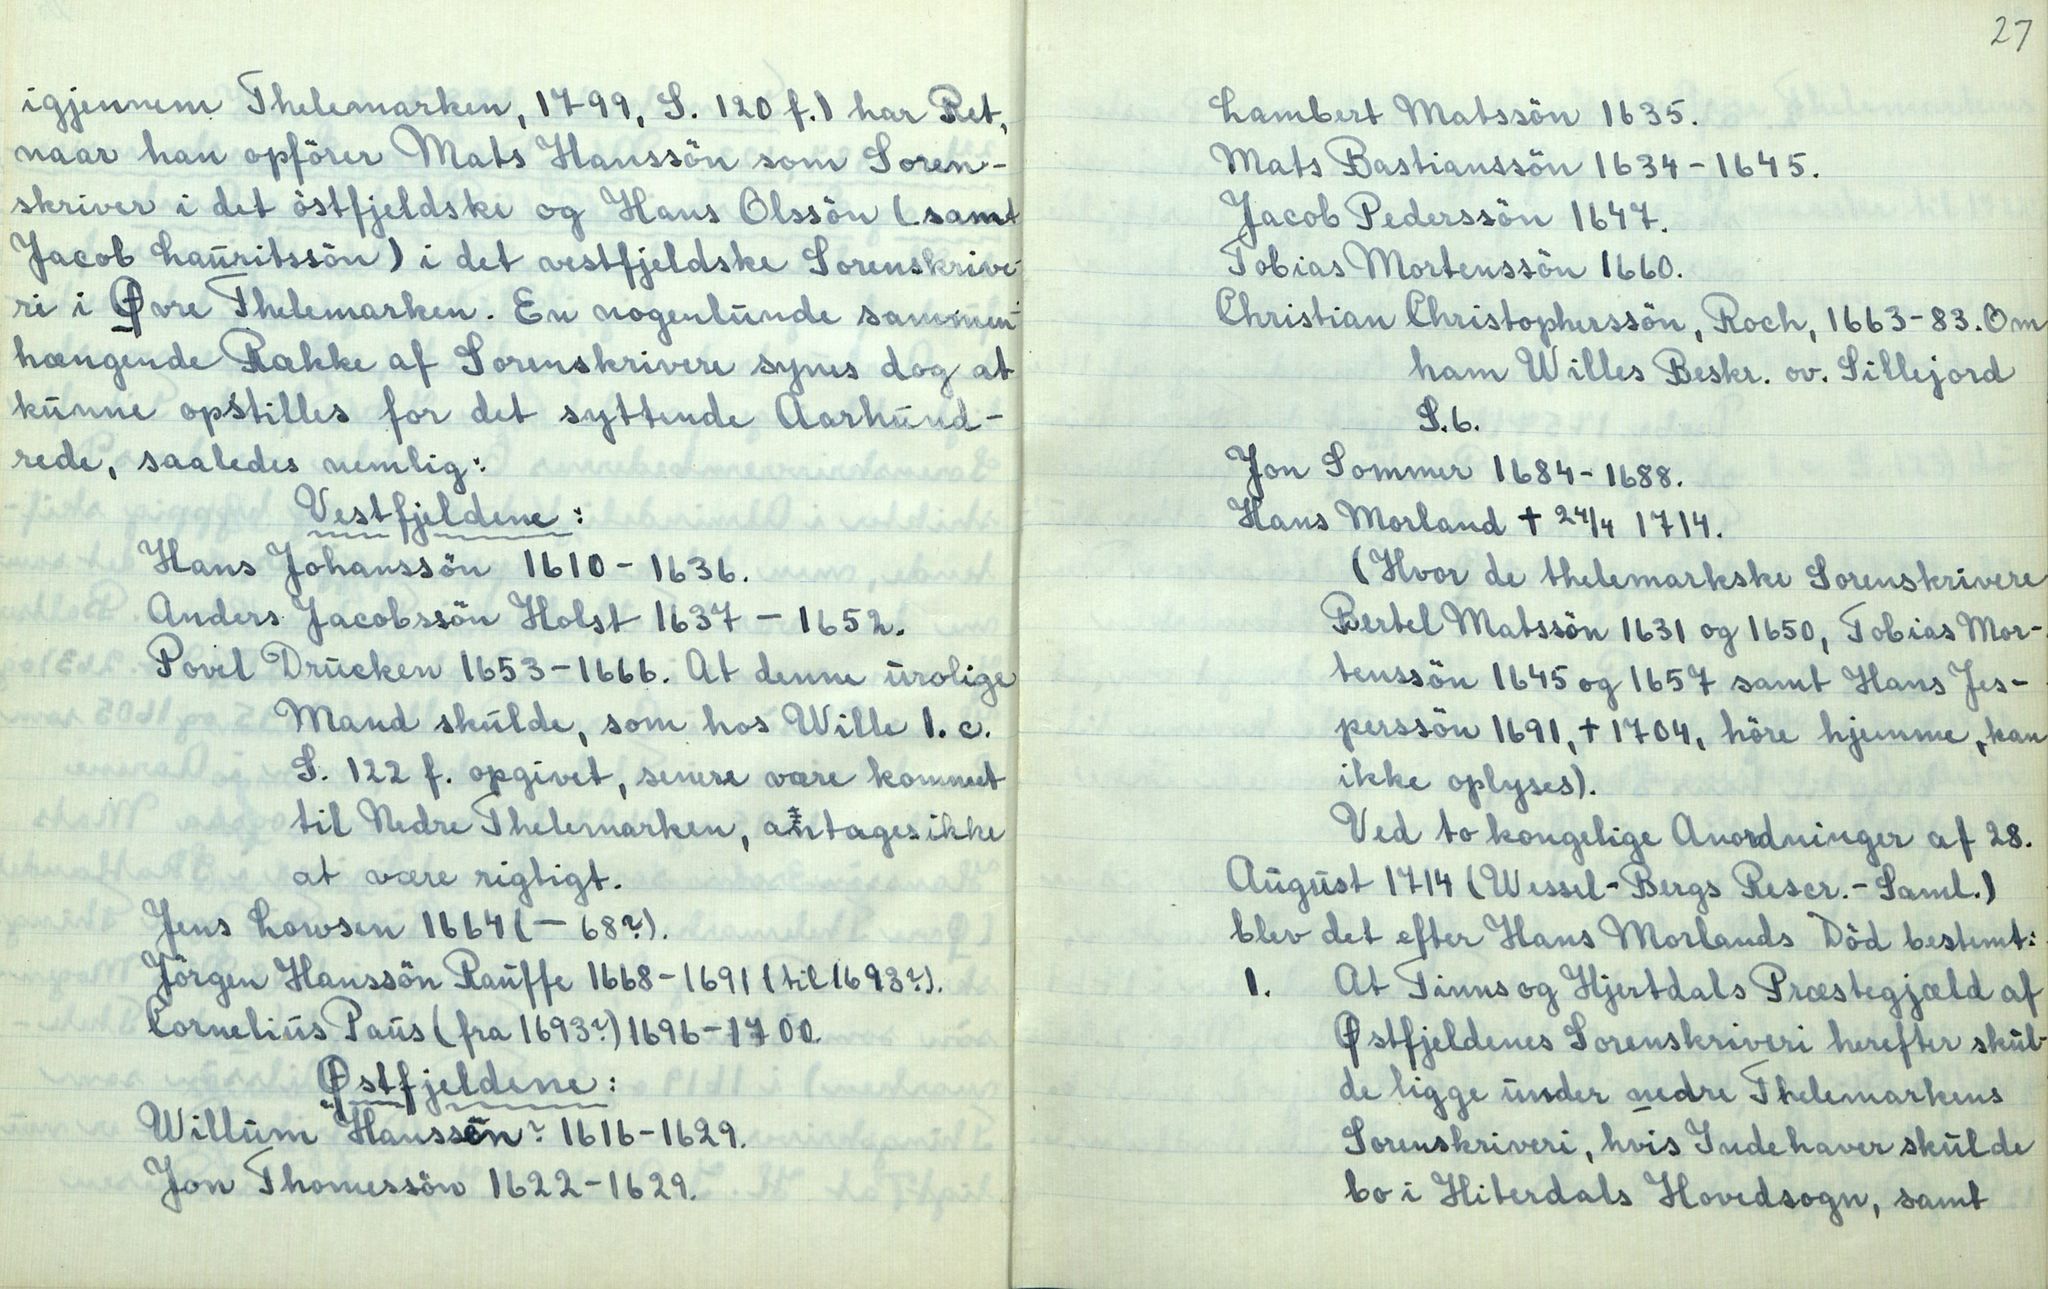 igjennem Thelemarken, 1799, S. 120 f.) har Ret,
naar han opförer Mats Hanssön som Soren-
skriver i det östfjeldske og Hans Olssön (samt
Jacob Lauritssön) i det vestfjeldske Sorenskrive-
ri i Øvre Thelemarken. En nogenlunde sammen-
hængende Række af Sorenskrivere synes dog at
kunne opstilles for det syttende Aarhund-
rede, saaledes nemlig:
Vestfjeldene:
Hans Johanssön 1610-1636.
Anders Jacobssön Holst 1637-1652.
Povel Drucken 1653-1666. At denne urolige
Mand skulde, som hos Wille l. c.
S. 122 f. opgivet, senere være kommet
til Nedre Thelemarken, antages ikke
at være rigtigt.
Jens Lowsen 1664 (-68?).
Jörgen Hanssön Rauffe 1668-1691 (til 1693?).
Cornelius Paus (fra 1693?) 1696-1700.
Østfjeldene:
Willum "Hanssön? 1616-1629.
Jon Thomessön 1622-1629.
27
Lambert Matssön 1635.
Mats Bastianssön 1634-1645.
Jacob Pederssön 1647.
Tobias Mortenssön 1660.
Christian Christopherssön, Roch, 1663-83. Om
ham Willes Beskr. ov. Sillejord
S. 6.
Jon Sommer 1684-1688.
Hans Morland † 24/4 1714.
(Hvor de thelemarkske Sorenskrivere
Bertel Matssön 1631 og 1650, Tobias Mor-
tenssön 1645 og 1657 samt Hans Jes-
perssön 1691, † 1704, höre hjemme, kan
ikke oplyses).
Ved to kongelige Anordninger af 28.
August 1714 (Wessel-Bergs Rescr.-Saml.)
blev det efter Hans Morlands Död bestemt:
1. At Tinns og Hjertdals Præstegjæld af
Østfjeldenes Sorenskriveri herefter skul-
de ligge under nedre Thelemarkens
Sorenskriveri, hvis Indehaver skulde
bo i Hiterdals Hovedsogn, samt